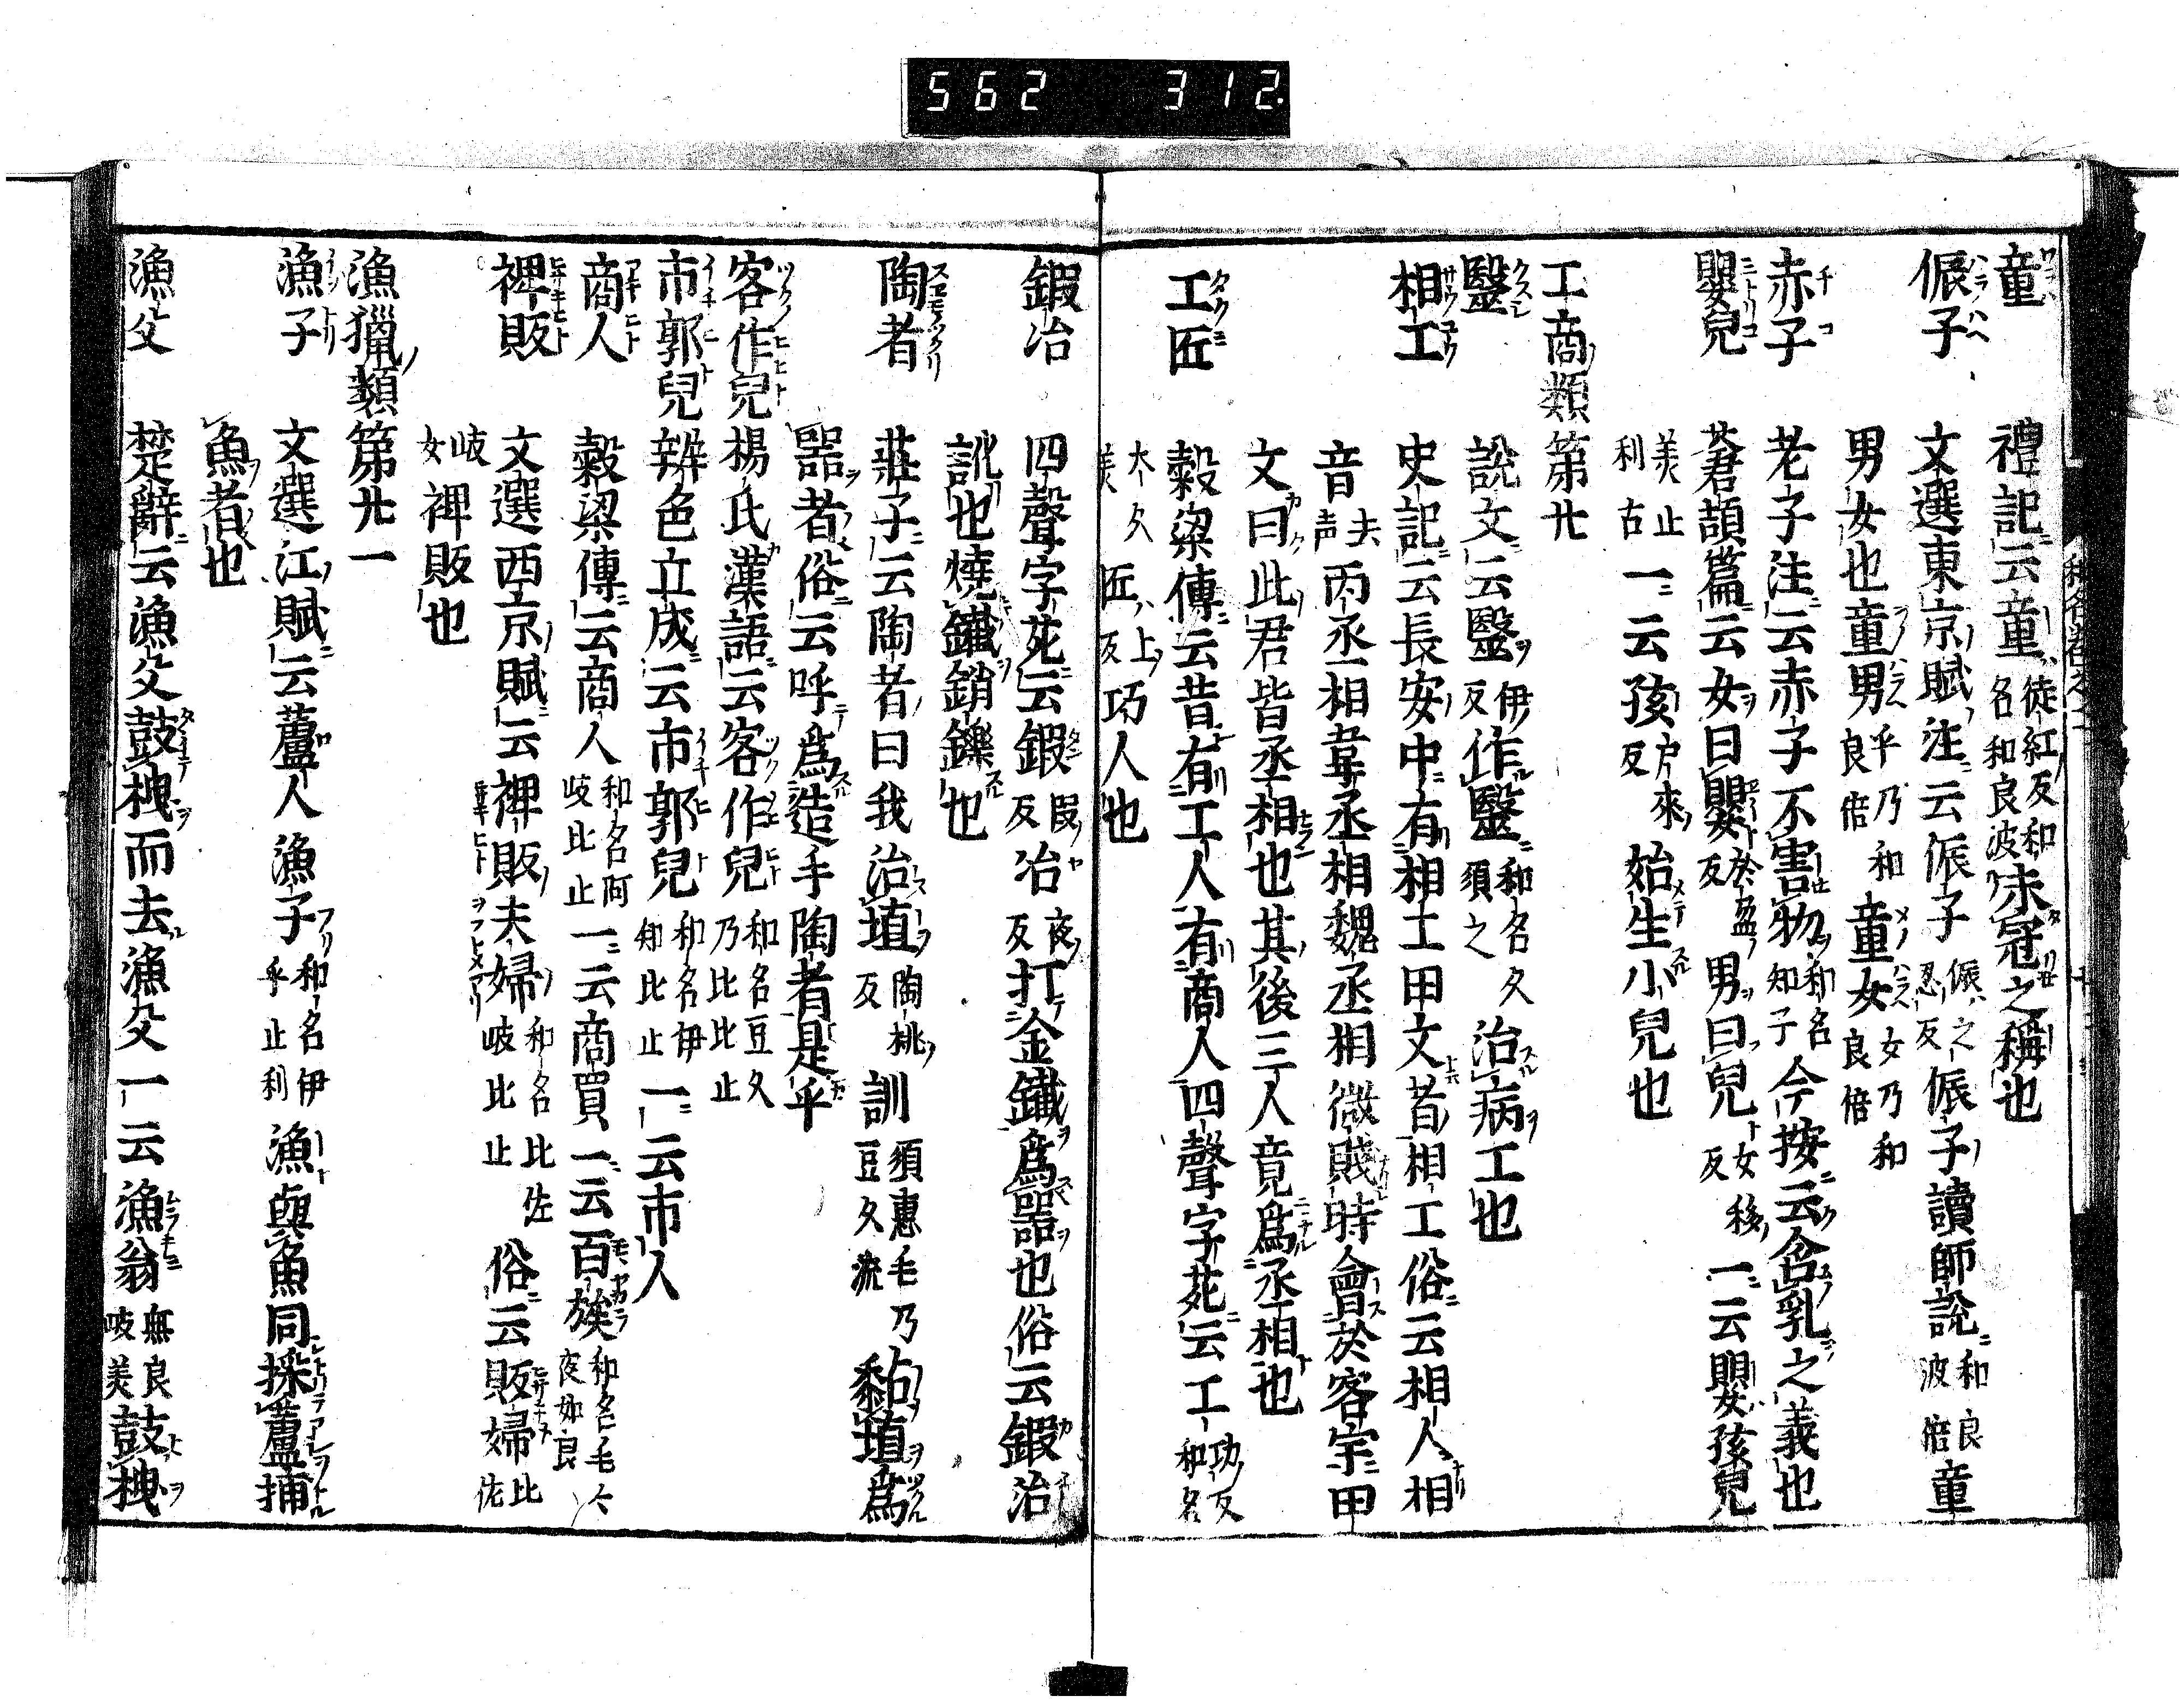 562 312
童 禮記云童徒紅反和名和良波未冠之稱也
侲子 文選東京賦注云侲子侲之忍反侲子讀師說和良波倍童
男女也童男乎乃和良倍童女女乃和良倍
赤子 老子注云赤子不害物和名知子今按云含乳之義也
嬰兒 蒼頡篇云女曰嬰於盈反男曰兒女移反一云嬰孩兒
美止利古一云孩戶來反始生小兒也
工商類第廿
醫 說文云醫伊反作毉和名久須之治病工也
相工 史記云長安中有相工田文者相工俗云相人相
音去声丙丞相韋丞相魏丞相微賤時會於客家田
文曰此君皆丞相也其後三人竟爲丞相也
工匠 穀梁傳云昔有工人有商人四聲字苑云工功反和名
太久美匠上反巧人也
鍛冶 四聲字苑云鍛段反冶夜反打金鐵爲器也俗云鍛冶
訛也燒鐵銷鑠也
陶者 莊子云陶者曰我治埴陶桃反訓須惠毛乃豆久流黏埴爲
器者俗云呼爲造手陶者是乎
客作兒 楊氏漢語云客作兒和名豆久乃比比止
市郭兒 辨色立成云市郭兒和名伊知比止一云市人
商人 穀梁傳云商人和名阿岐比止一云商買一云百族和名毛々夜加良
裨販 文選西京賦云裨販夫婦和名比佐岐比止俗云販婦比佐
岐女裨販也
漁獵類第廿一
漁子 文選江賦云蘆人漁子和名伊乎止利漁與魚同採蘆捕
魚者也
漁父 楚辭云漁父鼓枻而去漁父一云漁翁無良岐美鼓枻